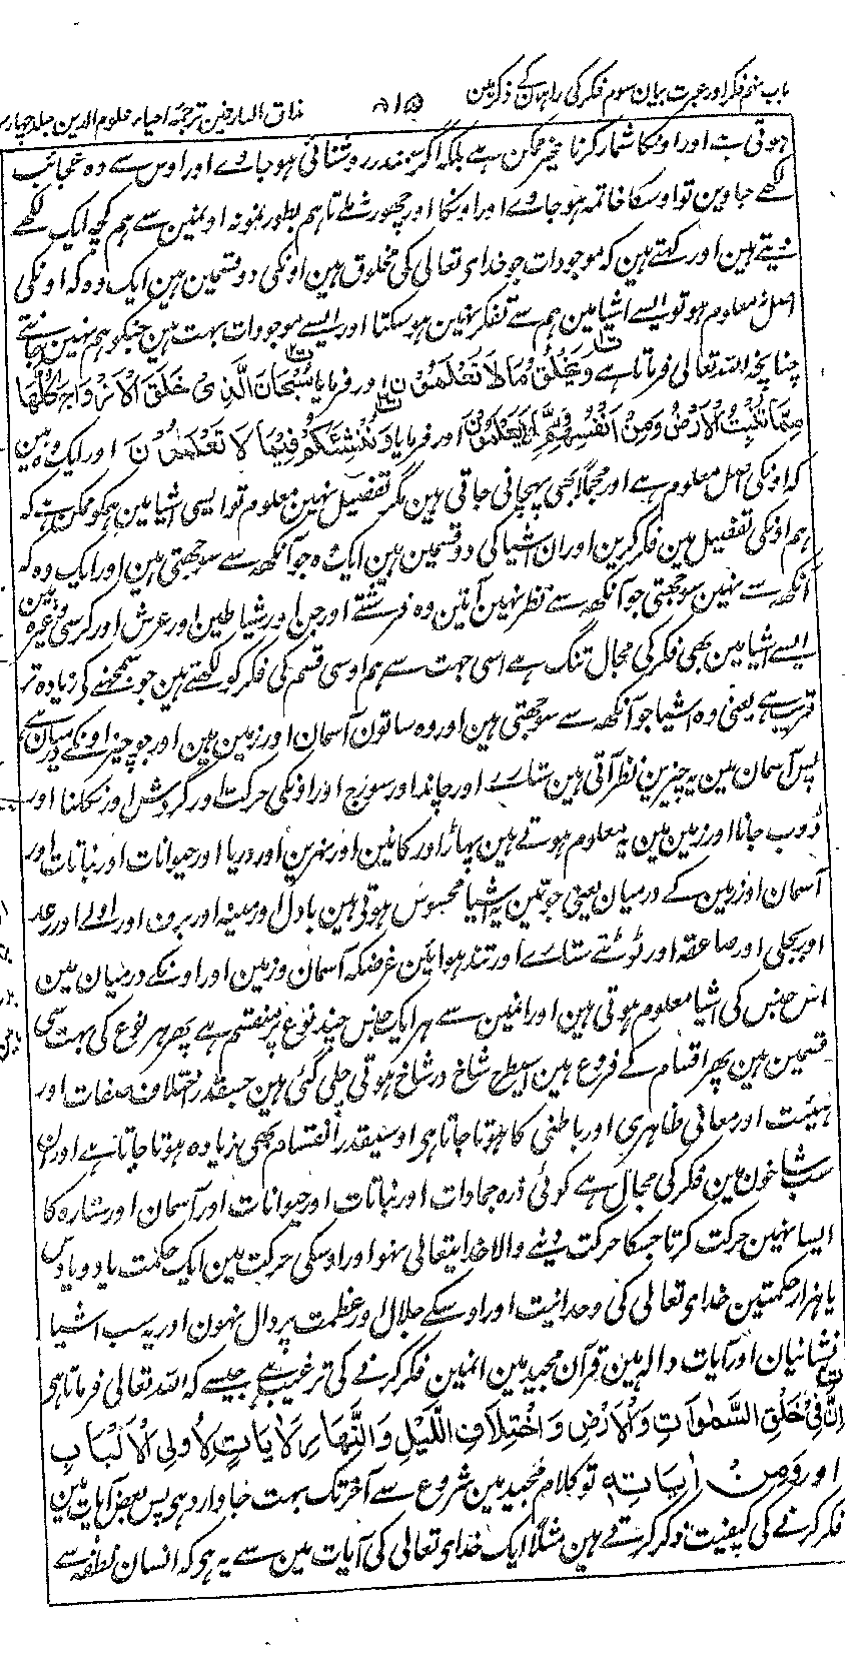 باب نہم فکر اور عبرت بیان سوم فکر کی راہوں کے ذکر مین ۸۱۵ مذاق العارفین ترجمۂ احیاء علوم الدین جلد چہارم
ہوتی ہے اور اونکا شمار کرنا غیر ممکن ہے بلکہ اگر سمندر روشنائی ہو جاوے اور اوس سے وہ عجائب
لکھے جاوین تو اوسکا خاتمہ ہو جاوے اور اونکا اور چھور نہ ملے تاہم بطور نمونہ اونمین سے ہم کچھ ایک لکھے
دیتے ہین اور کہتے ہین کہ موجودات جو خداے تعالی کی مخلوق ہین اونکی دو قسمین ہین ایک وہ کہ اونکی
اصل نہ معلوم ہو تو ایسے اشیا مین ہم سے تفکر نہین ہو سکتا اور ایسے موجودات بہت ہین جنکو ہم نہین جانتے
چنانچہ اللہ تعالی فرماتا ہے وَيَخْلُقُ مَا لَا تَعْلَمُوْنَ اور فرمایا سُبْحَانَ الَّذِیْ خَلَقَ الْاَزْوَاجَ كُلَّهَا
مِمَّا تُنْبِتُ الْاَرْضُ وَمِنْ اَنْفُسِهِمْ وَمِمَّا لَا يَعْلَمُوْنَ اور فرمایا وَنُنْشِئَكُمْ فِيْمَا لَا تَعْلَمُوْنَ اور ایک وہ ہین
کہ اونکی اصل معلوم ہے اور مجملاً بھی پہچانی جاتی ہین مگر تفصیل نہین معلوم تو ایسی اشیا مین ہمکو ممکن ہے کہ
ہم اونکی تفصیل مین فکر کرین اور ان اشیا کی دو قسمین ہین ایک وہ جو آنکھ سے سوجھتی ہین اور ایک وہ کہ
آنکھ سے نہین سوجھتی جو آنکھ سے نظر نہین آتین وہ فرشتے اور جن اور شیاطین اور عرش اور کرسی وغیرہ ہین
ایسے اشیا مین بھی فکر کی مجال تنگ ہے اسی جہت سے ہم اوسی قسم کی فکر کو لکھتے ہین جو سمجھنے کی زیادہ تر
قریب ہے یعنی وہ اشیا جو آنکھ سے سوجھتی ہین اور وہ ساتون آسمان اور زمین ہین اور جو چیز اونکے درمیان ہے
پس آسمان مین یہ چیزین نظر آتی ہین ستارے اور چاند اور سورج اور اونکی حرکت اور گردش اور نکلنا اور
ڈوب جانا اور زمین مین یہ معلوم ہوتے ہین پہاڑ اور کانین اور نہرین اور دریا اور حیوانات اور نباتات اور
آسمان اور زمین کے درمیان یعنی جو مین یہ اشیا محسوس ہوتی ہین بادل اور مینہ اور برف اور اولے اور رعد
اور بجلی اور صاعقہ اور ٹوٹتے ستارے اور تند ہوائین غرضکہ آسمان و زمین اور اونکے درمیان مین
اس جنس کی اشیا معلوم ہوتی ہین اور انمین سے ہر ایک جنس چند نوع پر منقسم ہے پھر ہر نوع کی بہت سی
قسمین ہین پھر اقسام کے فروع ہین اسیطرح شاخ در شاخ ہوتی چلی گئی ہین جسقدر اختلاف صفات اور
ہیئت اور معانی ظاہری اور باطنی کا ہوتا جاتا ہی اوسیقدر انقسام بھی زیادہ ہوتا جاتا ہے اور ان
سب شاخون مین فکر کی مجال ہے کوئی ذرہ جمادات اور نباتات اور حیوانات اور آسمان اور ستارہ کا
ایسا نہین حرکت کرتا جسکا حرکت دینے والا خدایتعالی نہو اور اوسکی حرکت مین ایک حکمت یا دو یا دس
یا ہزار حکمتین خداے تعالی کی وحدانیت اور اوسکے جلال اور عظمت پر دال نہون اور یہ سب اشیا
نشانیان اور آیات دالہ ہین قرآن مجید مین انمین فکر کرنے کی ترغیب ہے جیسے کہ اللہ تعالی فرماتا ہی
اِنَّ فِیْ خَلْقِ السَّمٰوَاتِ وَالْاَرْضِ وَاخْتِلَافِ اللَّيْلِ وَالنَّهَارِ لَاٰيَاتٍ لِّاُولِی الْاَلْبَابِ
اور وَمِنْ اٰيَاتِهٖ تو کلام مجید مین شروع سے آخر تک بہت جا وارد ہی پس بعض آیات مین
فکر کرنے کی کیفیت ذکر کرتے ہین مثلاً ایک خداے تعالی کی آیات مین سے یہ ہی کہ انسان نطفہ سے